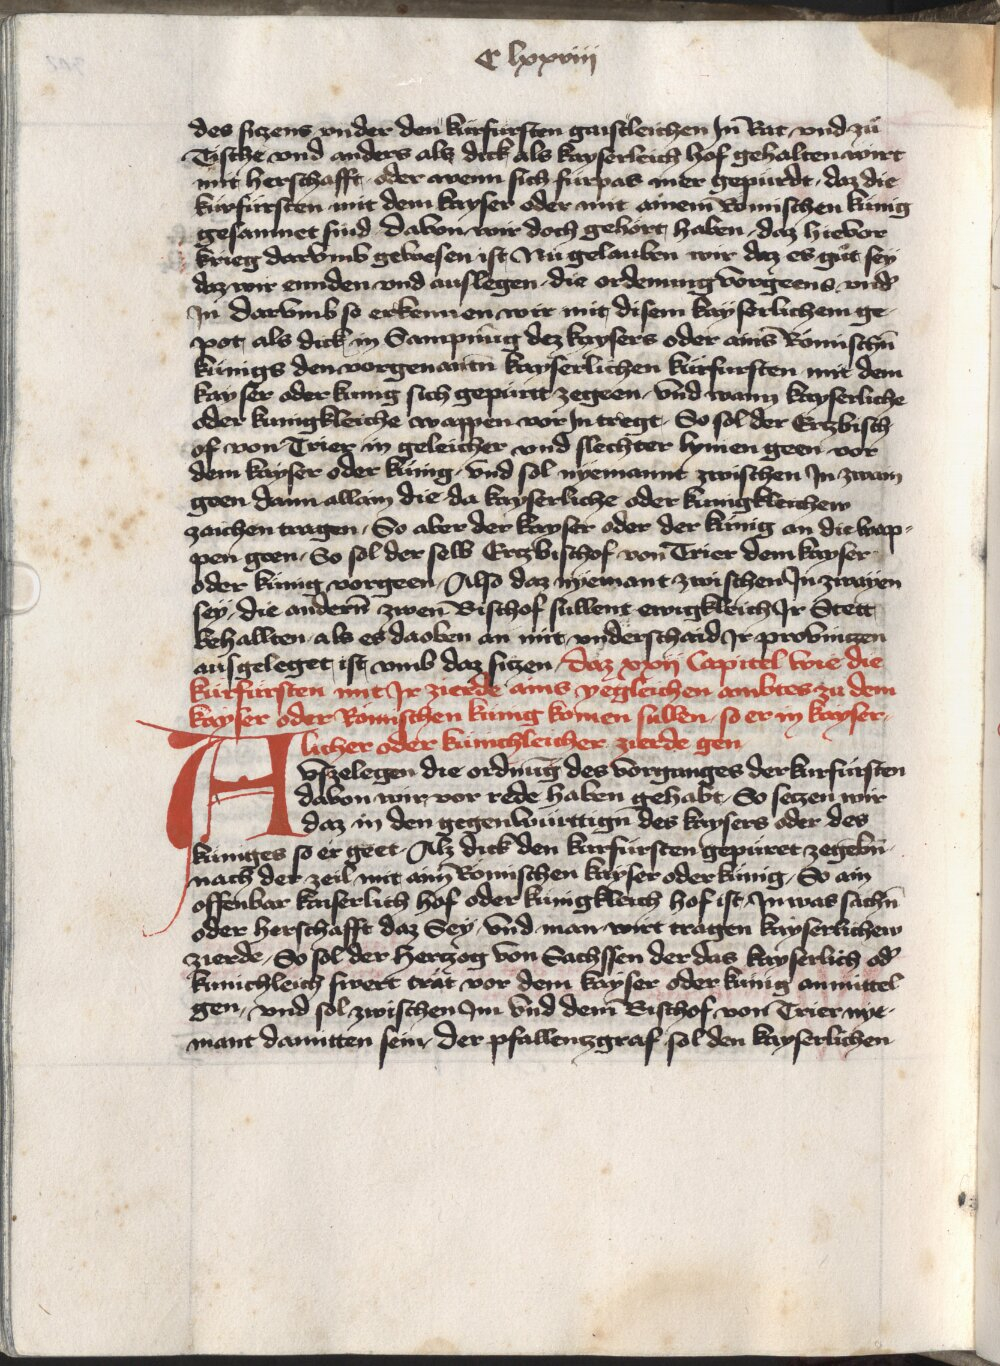 C lxxviii
des siczens vnder den kurfursten gaistleichen Jn Rat vnd zu
Tische vnd anders als dick als kayserleich hof gehalten wirt
mit herschafft oder wenn sich furpas mer gepurdt daz die
kurfursten mit dem kayser oder mit ainem Romischen kunig
gesamnet sind davon wir doch gehort haben daz hievor
krieg darvmb gewesen ist Nu gelauben wir daz es gut sey
daz wir ennden vnd auslegen die ordenung vorgeens vnd
Jn darvmb so erkennen wir mit disem kayserlichem ge-
pot als dick in Sampnung dez kaysers oder ains Romischn
kunigs den vorgenantn kayserlichen kurfursten mit dem
kayser oder kunig sich gepurtt zegeen vnd wann kayserliche
oder kunigkleiche wappen vor Jn tregt So sol der Erczbisch
of von Trier in geleicher vnd slechter lynien geen vor
dem kayser oder kunig vnd sol nyemannt zwischen Jn zwain
geen dann allain die da kayserliche oder kunigkleichew
zaichen tragen So aber der kayser oder der kunig an die wap-
pen geen So sol der selb Erczbischof von Trier dem kayser
oder kunig vorgeen Also daz nyemant zwischen Jn zwayen
sey die andern zwen Bischof sullent ewigkleich Jr Stett
behallten als es da oben an mit vnderschaid Jr provinczen
ausgeleget ist vmb daz siczen daz xxij Capitel wie die
kurfursten mit Jr zierde ains yegleichen ambtes zu dem
kayser oder Romischen kunig komen sullen so er in kayser-
licher oder kunichleicher zierde gen
Avszelegen die ordnung des vorganges der kurfursten
davon wir vor rede haben gehabt So seczen wir
daz in den gegenwurttign des kaysers oder des
kuniges so er geet Alz dick den kurfursten gepuret zegebn
nach der zeil mit aim Romischen kayser oder kunig So ain
offenbar kaiserlich hof oder kunigkleich hof ist Jn was sachn
oder herschafft daz Sey vnd man wirt tragen kayserlichew
zierde So sol der Herczog von Sachssen der das kayserlich od
kunichleich swert trat vor dem kayser oder kunig anmittel
gen vnd sol zwischen Jm vnd dem Bischof von Trier nye-
mant damitten sein der pfallenczgraf sol den kayserlichen